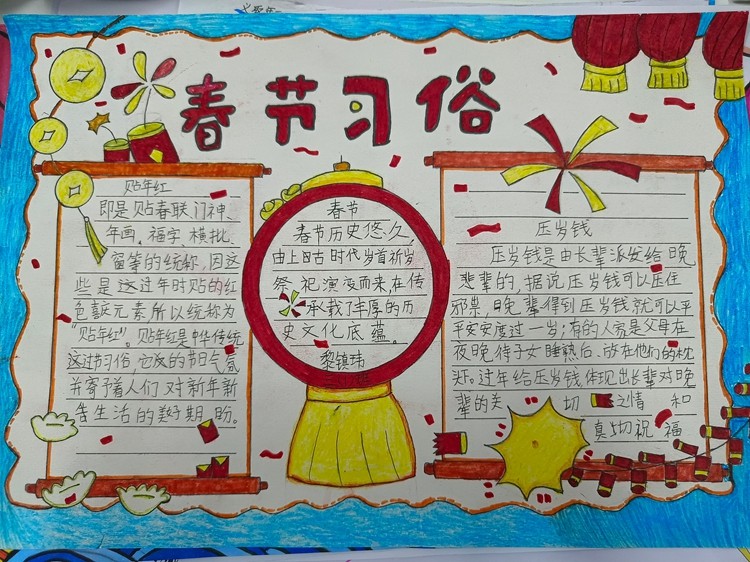 春节习俗
贴年红
即是贴春联门神、
年画、福字、横批、
窗等的统称，因这
些是过年时贴的红
色喜元素所以统称为
"贴年红"。贴年红是中华传统
过节习俗，它反的节日气氛
并寄予着人们对新年新
生活的美好期盼。
春节
春节历史悠久，
由上古时代岁首祈岁
祭祀演变而来在传
承承载了丰厚的历
史文化底蕴。
黎镇玮
压岁钱
压岁钱是由长辈派发给晚
辈的，据说压岁钱可以压住
邪祟，晚辈得到压岁钱就可以平
平安安度过一岁；有的人家是父母在
夜晚待子女睡熟后，放在他们的枕
头下。过年给压岁钱体现出长辈对晚
辈的关切之情和
真切祝福